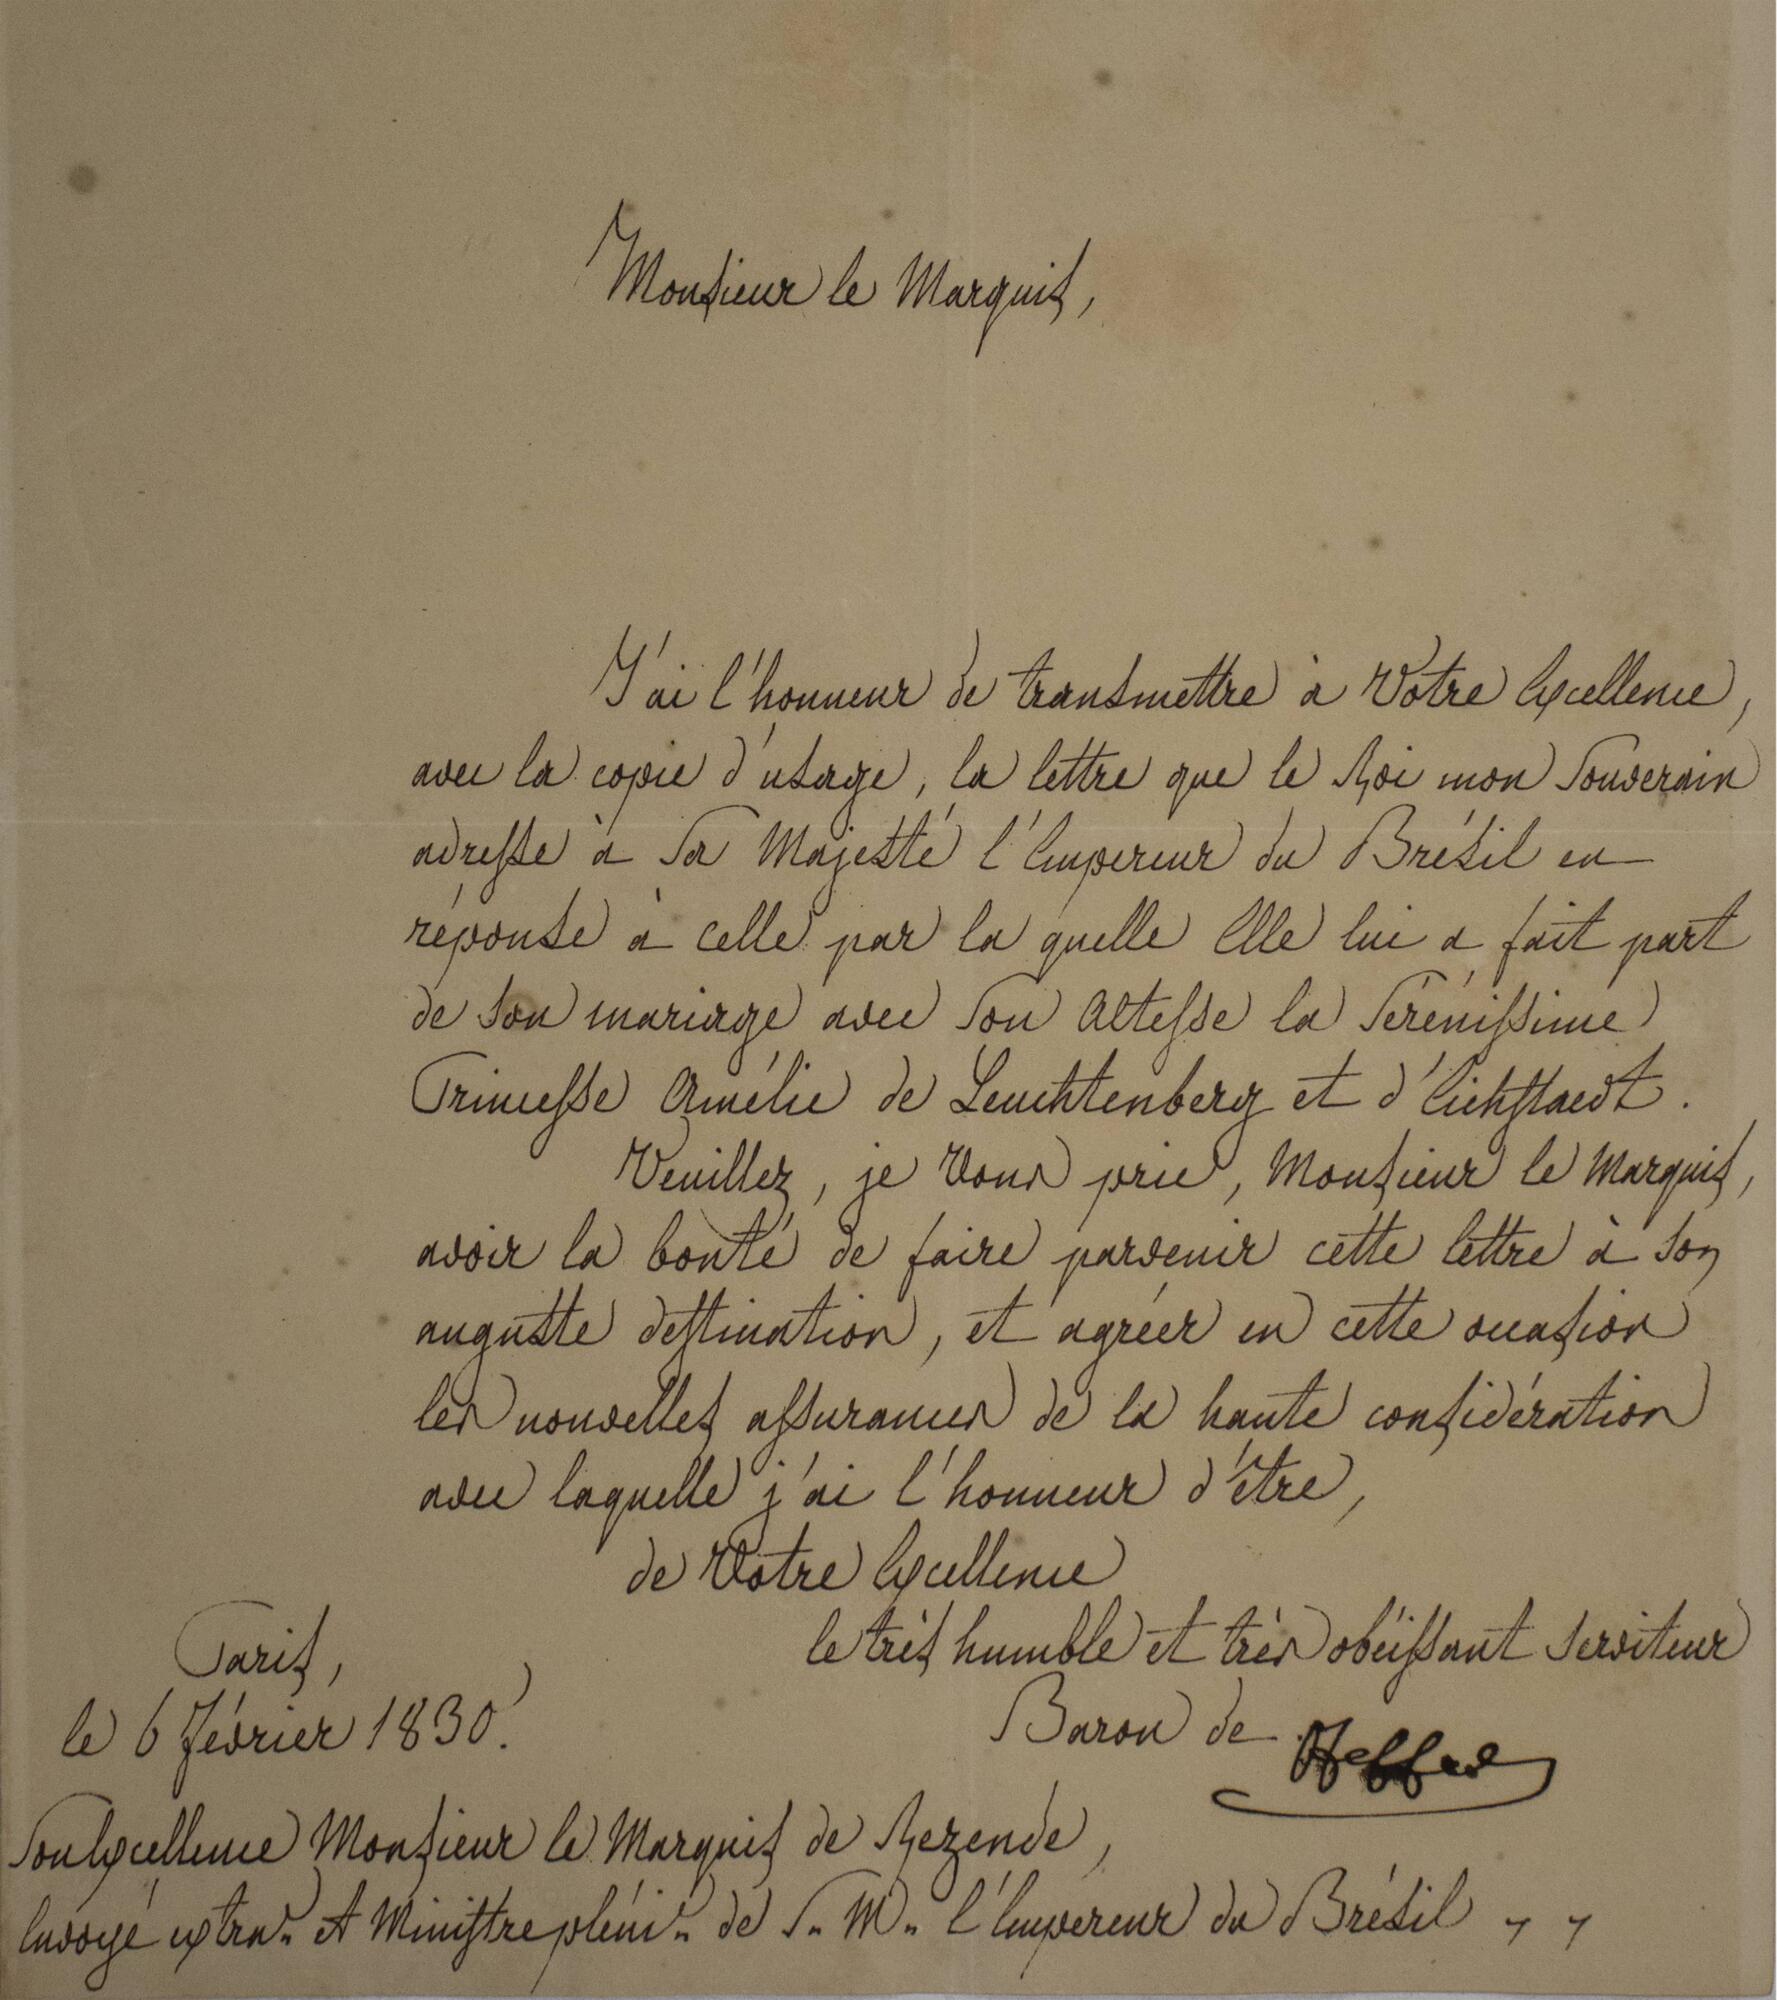 Monsieur le Marquis,
J'ai l'honneur de transmettre à Votre Excellence,
avec la copie d'usage, la lettre que le Roi mon Souverain
adresse à Sa Majesté l'Empereur du Brésil en
réponse à celle par la quelle Elle lui a fait part
de Son mariage avec Son Altesse la Sérénissime
Princesse Amélie de Leuchtenberg et d'Eichstaedt.
Veuillez, je Vous prie, Monsieur le Marquis,
avoir la bonté de faire parvenir cette lettre à Son
auguste destination, et agréer en cette occasion
les nouvelles assurances de la haute considération
avec laquelle j'ai l'honneur d'être,
de Votre Excellence
le très humble et très obéissant Serviteur
Baron de
Paris,
le 6 Février 1830.
Son Excellence Monsieur le Marquis de Rezende,
Envoyé extra. et Ministre pléni. de S. M. l'Empereur du Brésil